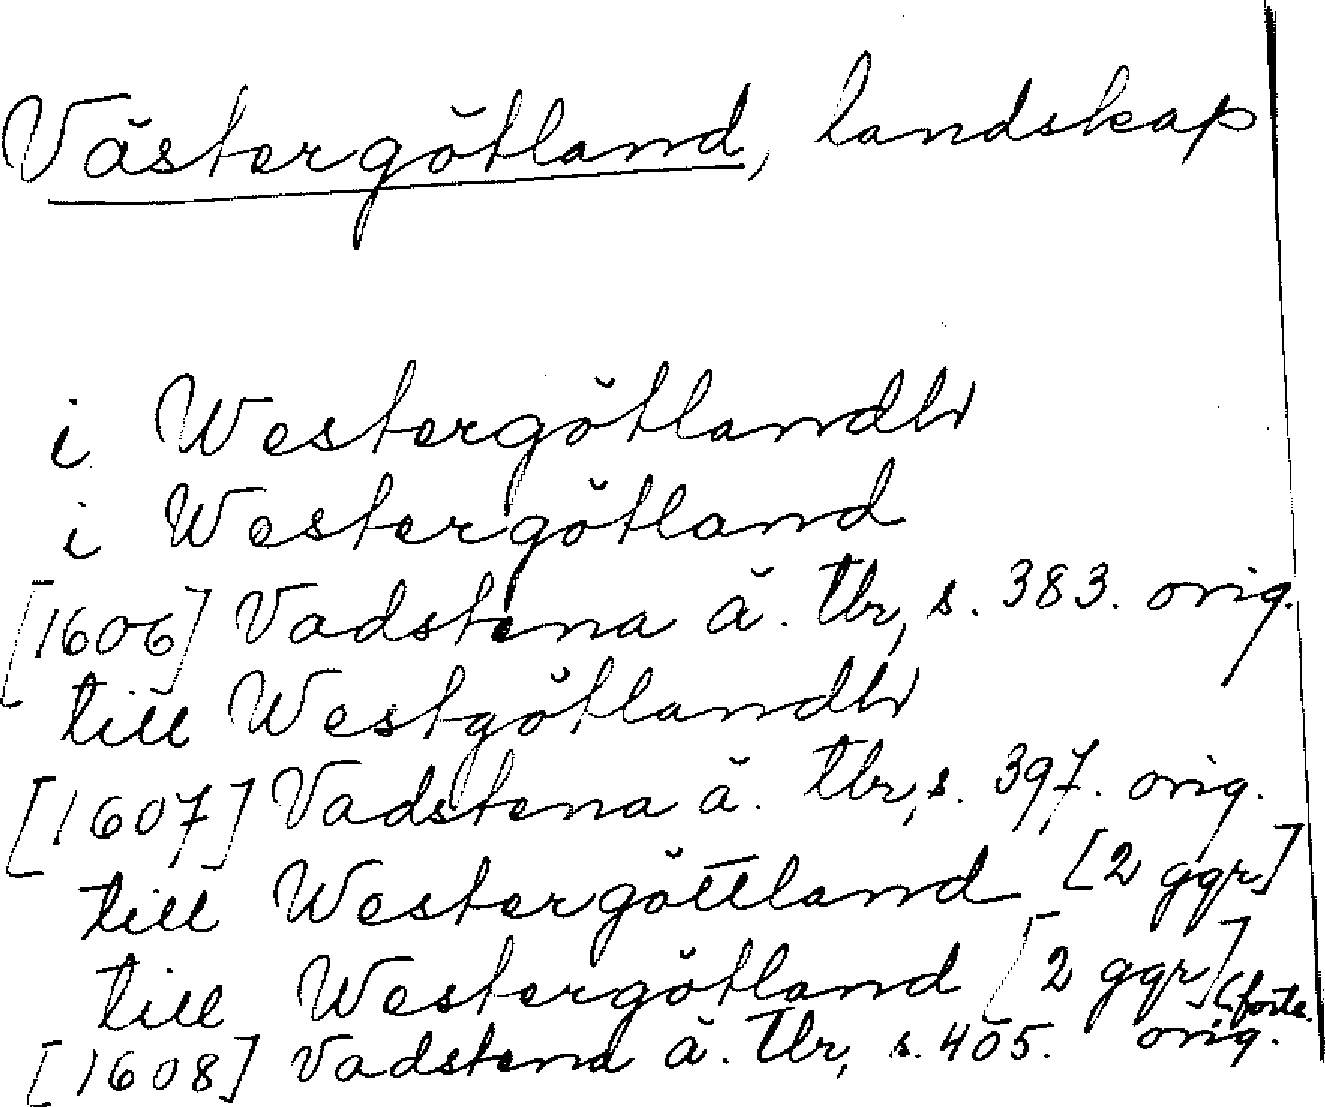 Västergötland, landskap
i Westergötlandh
i Westergötland
[1606] Vadstena ä. tbr, s. 383. orig.
till Westgötlandh
[1607] Vadstena ä. tbr, s. 397. orig.
till Westergöttland [2 ggr]
till Westergötland [2 ggr] (forts.
[1608] Vadstena ä. Tbr, s. 405. orig.